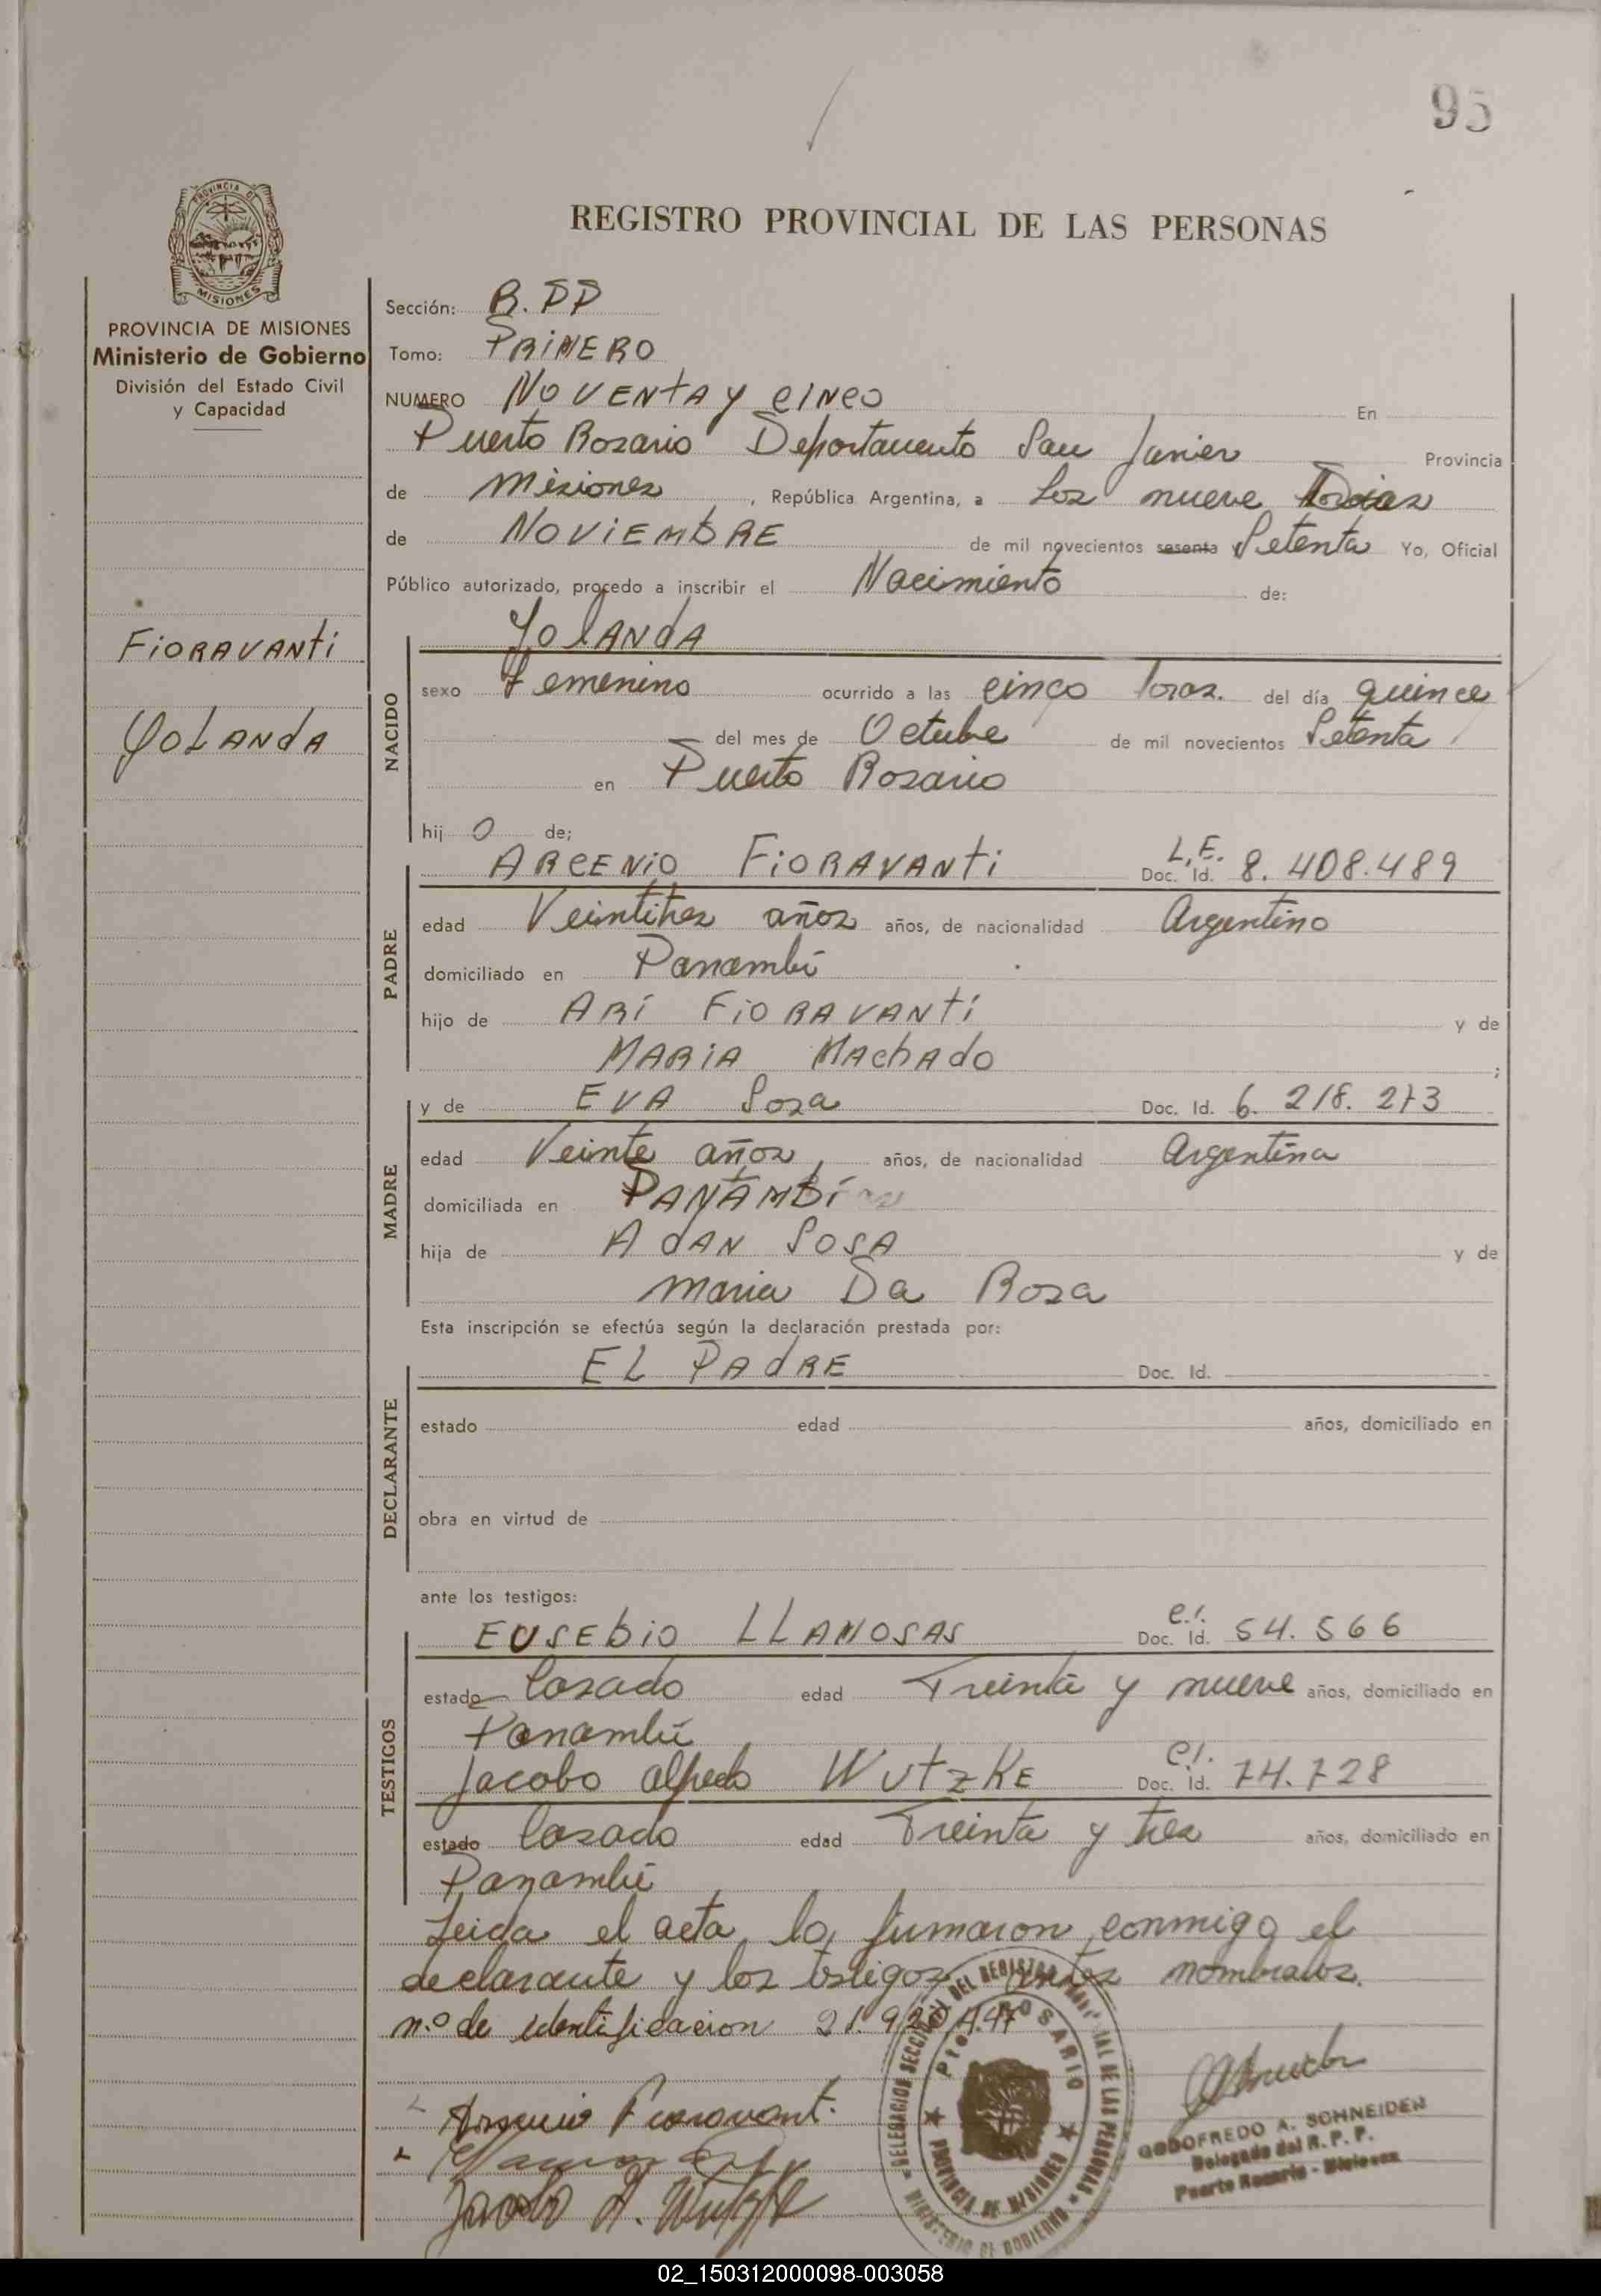 95
REGISTRO PROVINCIAL DE LAS PERSONAS
PROVINCIA DE MISIONES
PROVINCIA DE MISIONES
Ministerio de Gobierno
División del Estado Civil
y Capacidad
FiORAVANti
YOLANdA
Sección: R.PP
Tomo: PRiMERO
NUMERO NOVENtA y CiNCO En
Puerto Rosario Departamento San Javier Provincia
de Misiones, República Argentina, a los nueve Dias
de NOViEMbRE de mil novecientos sesenta Setenta Yo, Oficial
Público autorizado, procedo a inscribir el Nacimiento de:
NACIDO
YolANdA
sexo Femenino ocurrido a las cinco horas. del día quince
del mes de Octubre de mil novecientos Setenta
en Puerto Rosario
hij o de;
PADRE
ARCENiO FiORAVANti L.E. Doc. Id. 8.408.489
edad Veintitres años años, de nacionalidad Argentino
domiciliado en Panambí
hijo de ARí FiORAVANTí y de
MARiA MAchAdo ;
MADRE
y de EVA Sosa Doc. Id. 6.218.273
edad Veinte años, años, de nacionalidad Argentina
domiciliada en PANAMbí
hija de AdAN SOSA y de
Maria Da Rosa
Esta inscripción se efectúa según la declaración prestada por:
DECLARANTE
EL PAdRE Doc. Id.
estado edad años, domiciliado en
obra en virtud de
ante los testigos:
TESTIGOS
EUSEbiO LLAMOSAS C.I. Doc. Id. 54.566
estado Casado edad Treinta y nueve años, domiciliado en
Panambí
Jacobo Alfredo WUtzKE C.I. Doc. Id. 74.728
estado Casado edad Treinta y tres años, domiciliado en
Panambí
Leida el acta, la firmaron conmigo el
declarante y los testigos antes nombrados.
n.º de identificacion 21.920.447
Arsenio Fioravanti
Jacobo A. Wutzke
DELEGACION SECCIONAL DEL REGISTRO PROVINCIAL DE LAS PERSONAS
Pto. ROSARIO
PROVINCIA DE MISIONES
MINISTERIO DE GOBIERNO
GODOFREDO A. SCHNEIDER
Delegado del R. P. P.
Puerto Rosario - Misiones
02_150312000098-003058